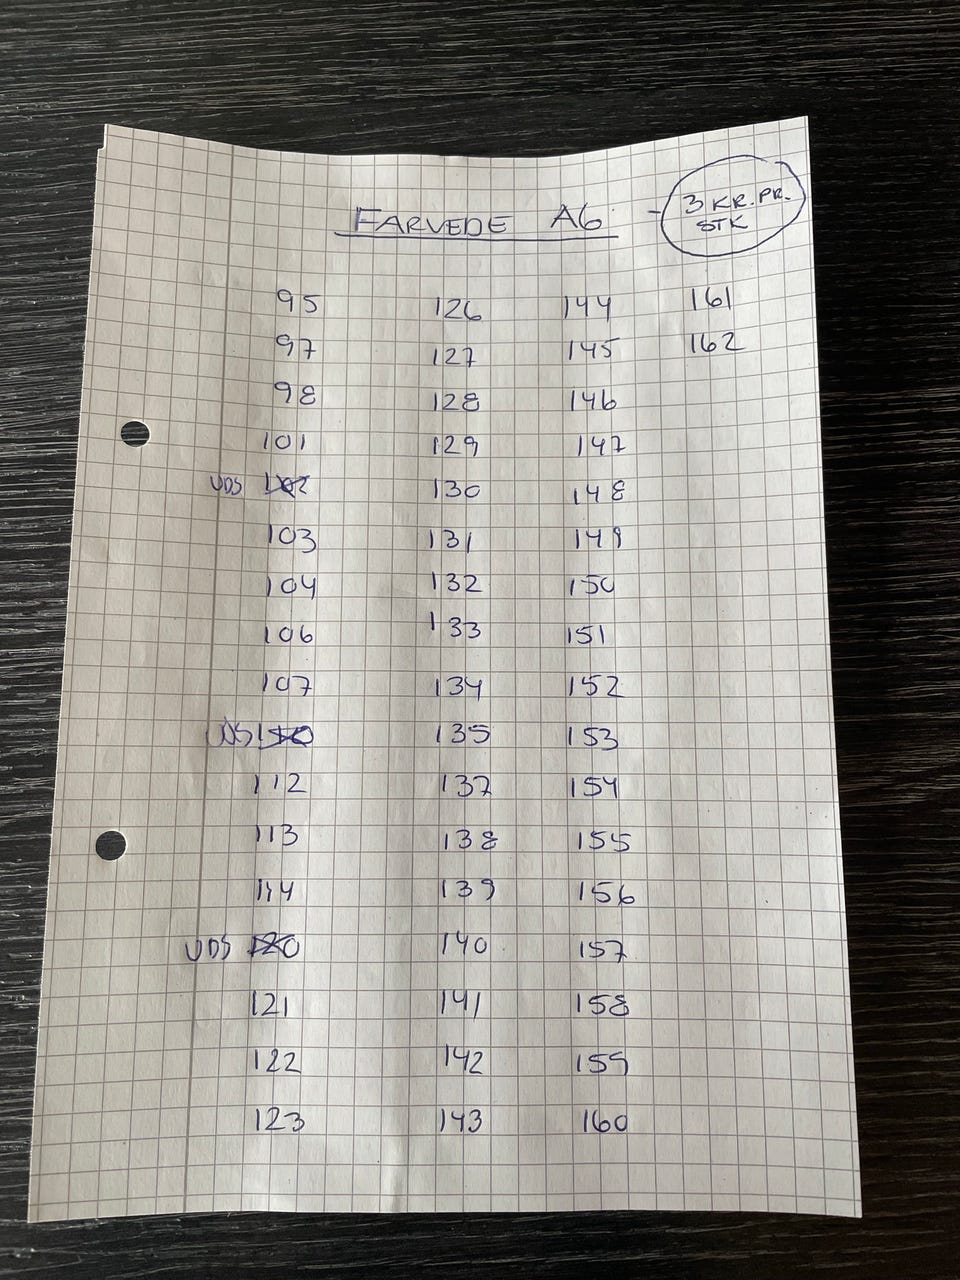 FARVEDE A6 - 3 KR. PR. STK
95 126 144 161
97 127 145 162
98 128 146
101 129 147
UDS 102 130 148
103 131 149
104 132 150
106 133 151
107 134 152
UDS 110 135 153
112 137 154
113 138 155
114 139 156
UDS 120 140 157
121 141 158
122 142 159
123 143 160